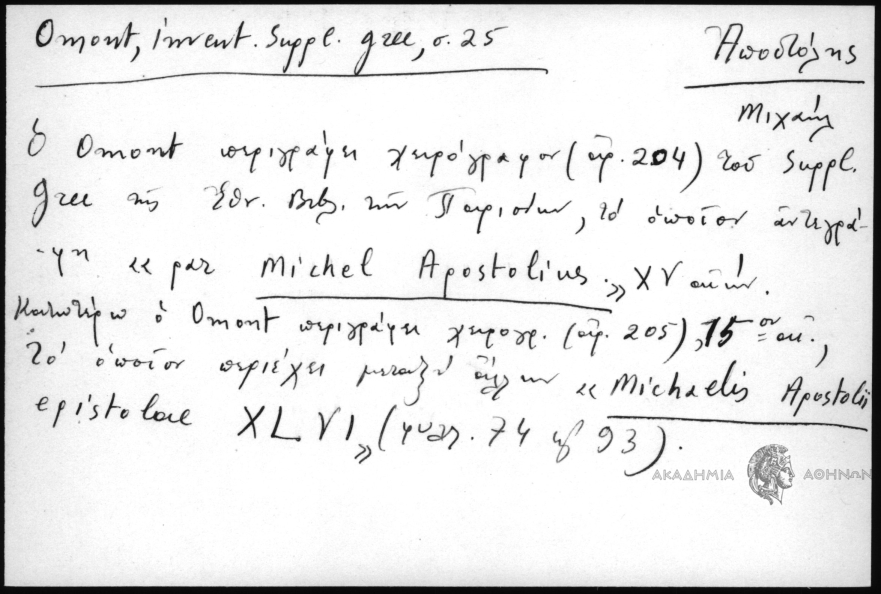 Omont, invent. Suppl. grec, σ. 25
Ἀποστόλης
Μιχαήλ
ὁ Omont περιγράφει χειρόγραφον (ἀρ. 204) τοῦ Suppl.
grec τῆς Ἐθν. Βιβλ. τῶν Παρισίων, τὸ ὁποῖον ἀντεγρά-
-φη «par Michel Apostolius.» XV αἰών.
Κατωτέρω ὁ Omont περιγράφει χειρογρ. (ἀρ. 205), 15ον αἰ.,
τὸ ὁποῖον περιέχει μεταξὺ ἄλλων «Michaelis Apostolii
epistolae XLVI» (φυλλ. 74 93).
ΑΚΑΔΗΜΙΑ ΑΘΗΝΩΝ